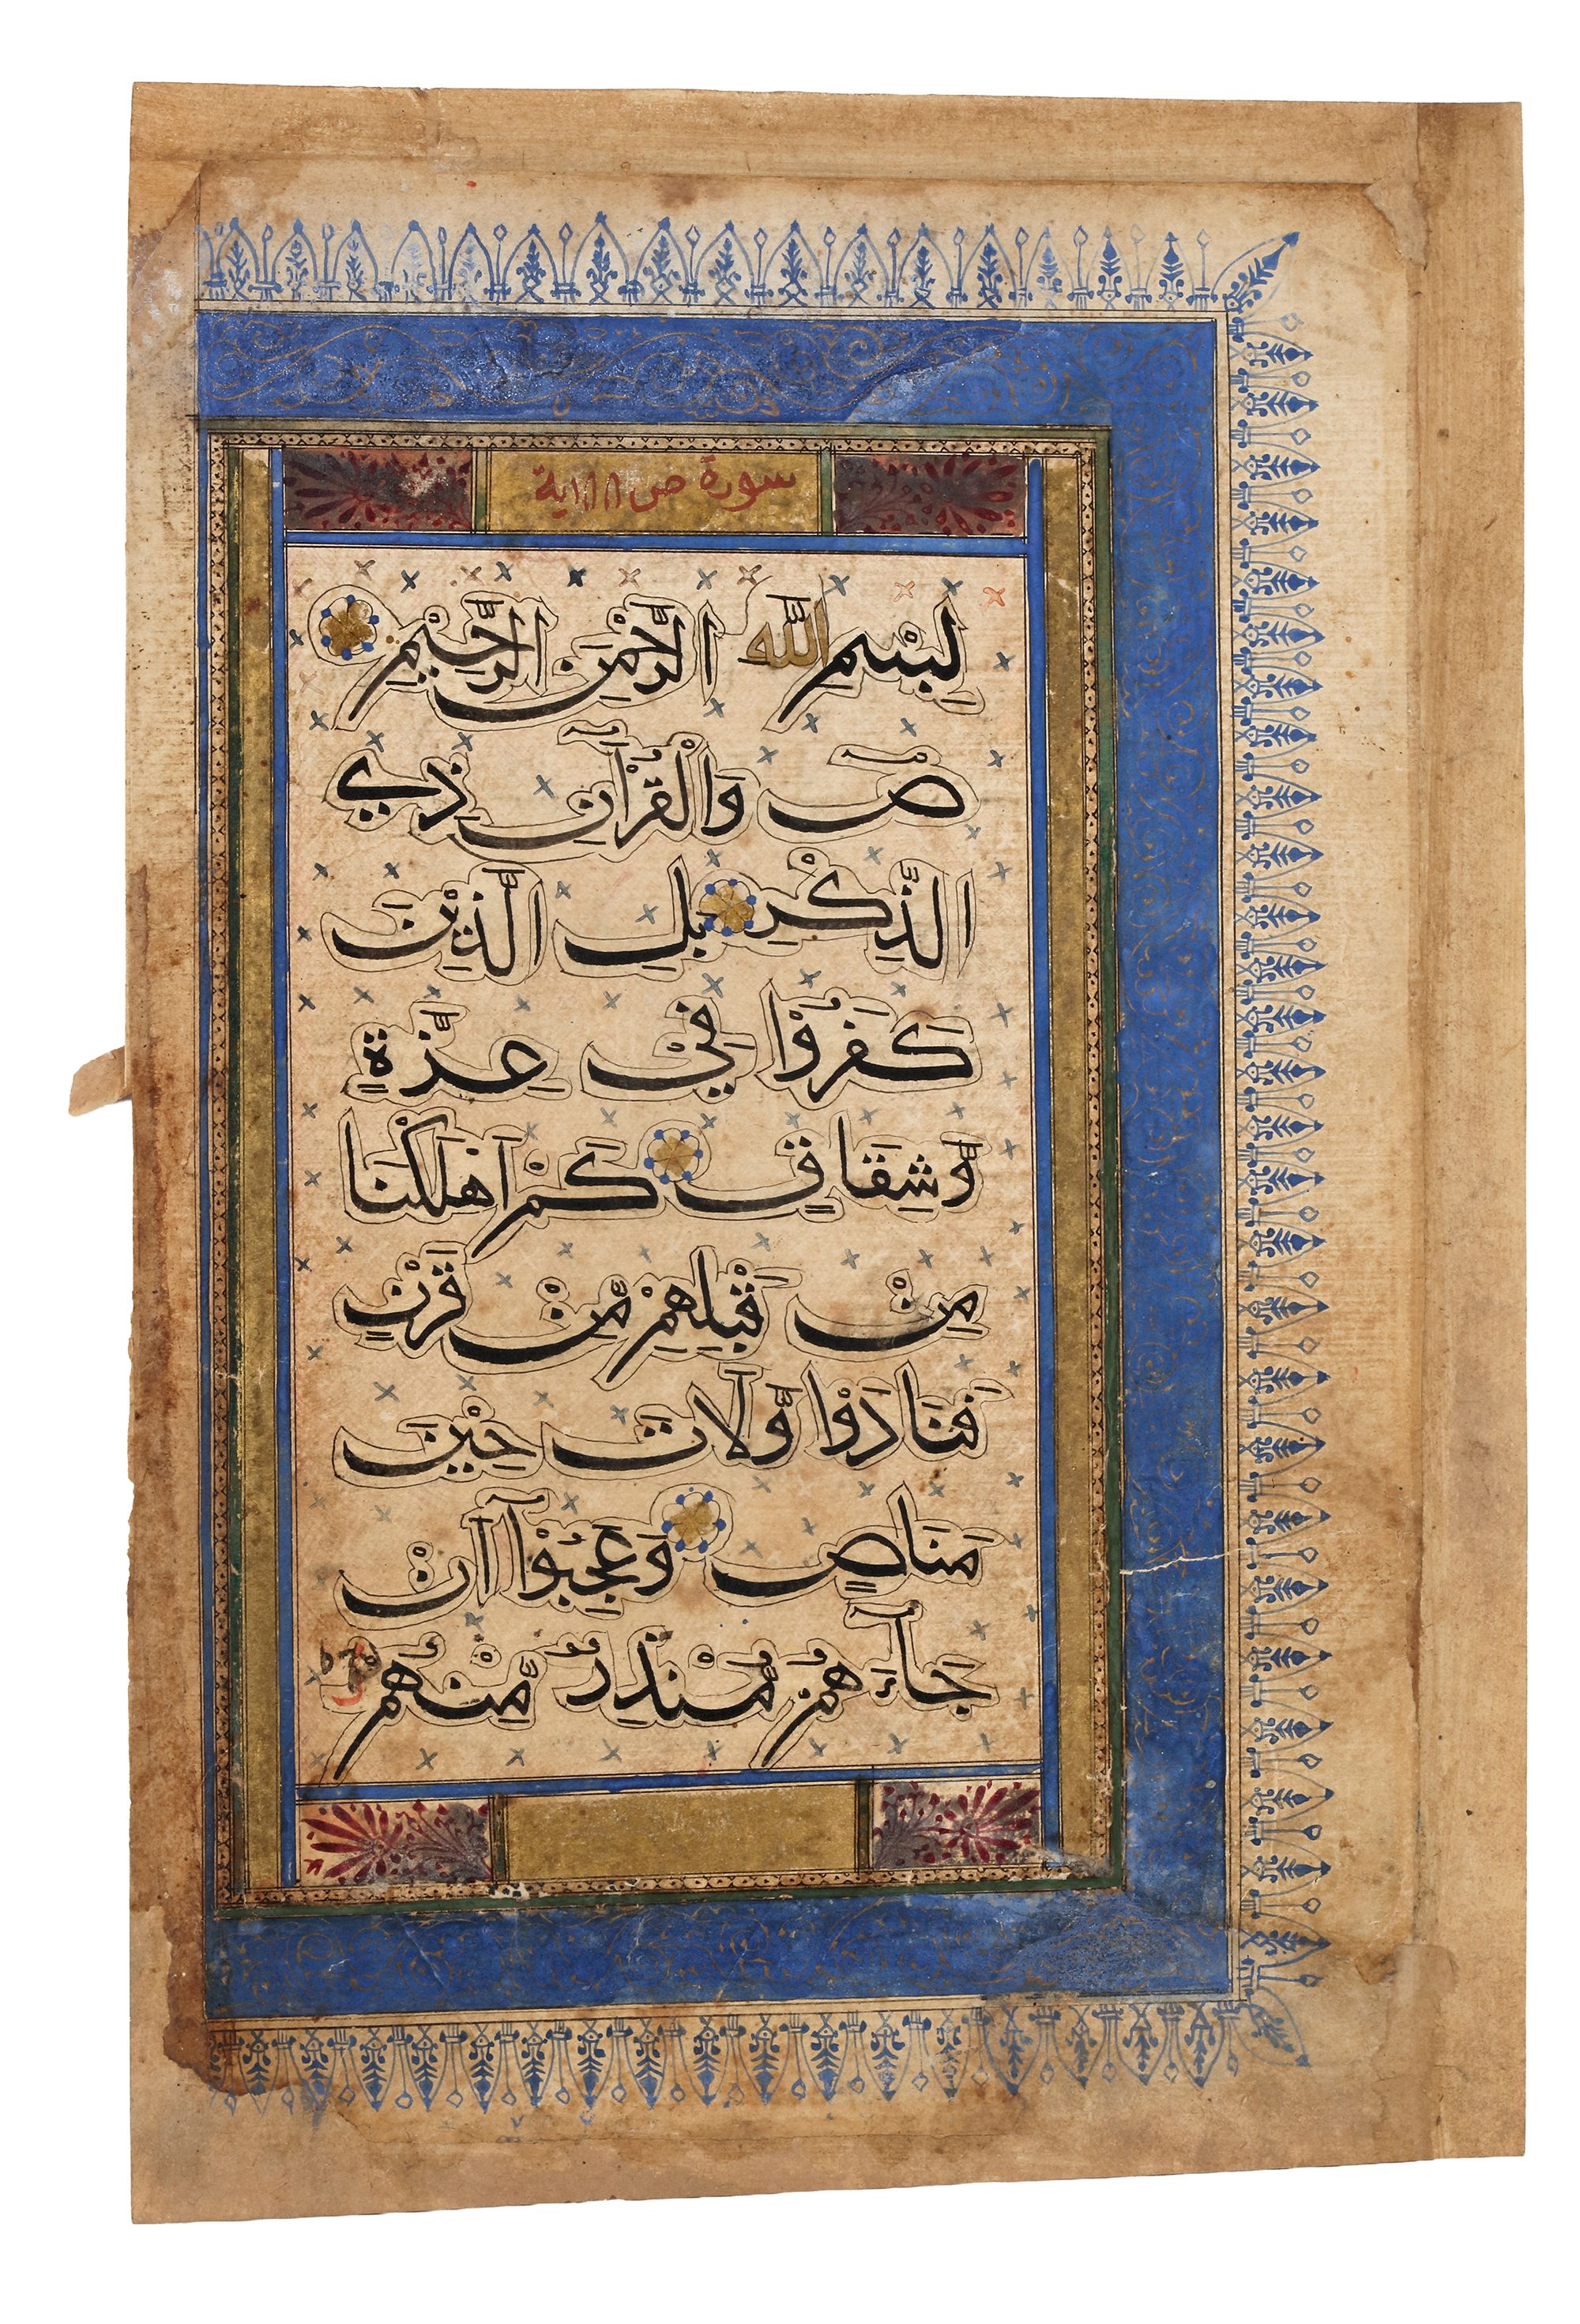 سورة ص ١٨٨ية
بِسْمِ اللّٰه الرَّحْمٰنِ الرَّحِيْمِ
صٓ وَالْقُرْاٰنِ ذِي
الذِّكْرِ بَلِ الَّذِيْنَ
كَفَرُوْا فِيْ عِزَّةٍ
وَّشِقَاقٍ كَمْ اَهْلَكْنَا
مِنْ قَبْلِهِمْ مِّنْ قَرْنٍ
فَنَادَوْا وَّلَاتَ حِيْنَ
مَنَاصٍ وَعَجِبُوْٓا اَنْ
جَآءَهُمْ مُّنْذِرٌ مِّنْهُمْ